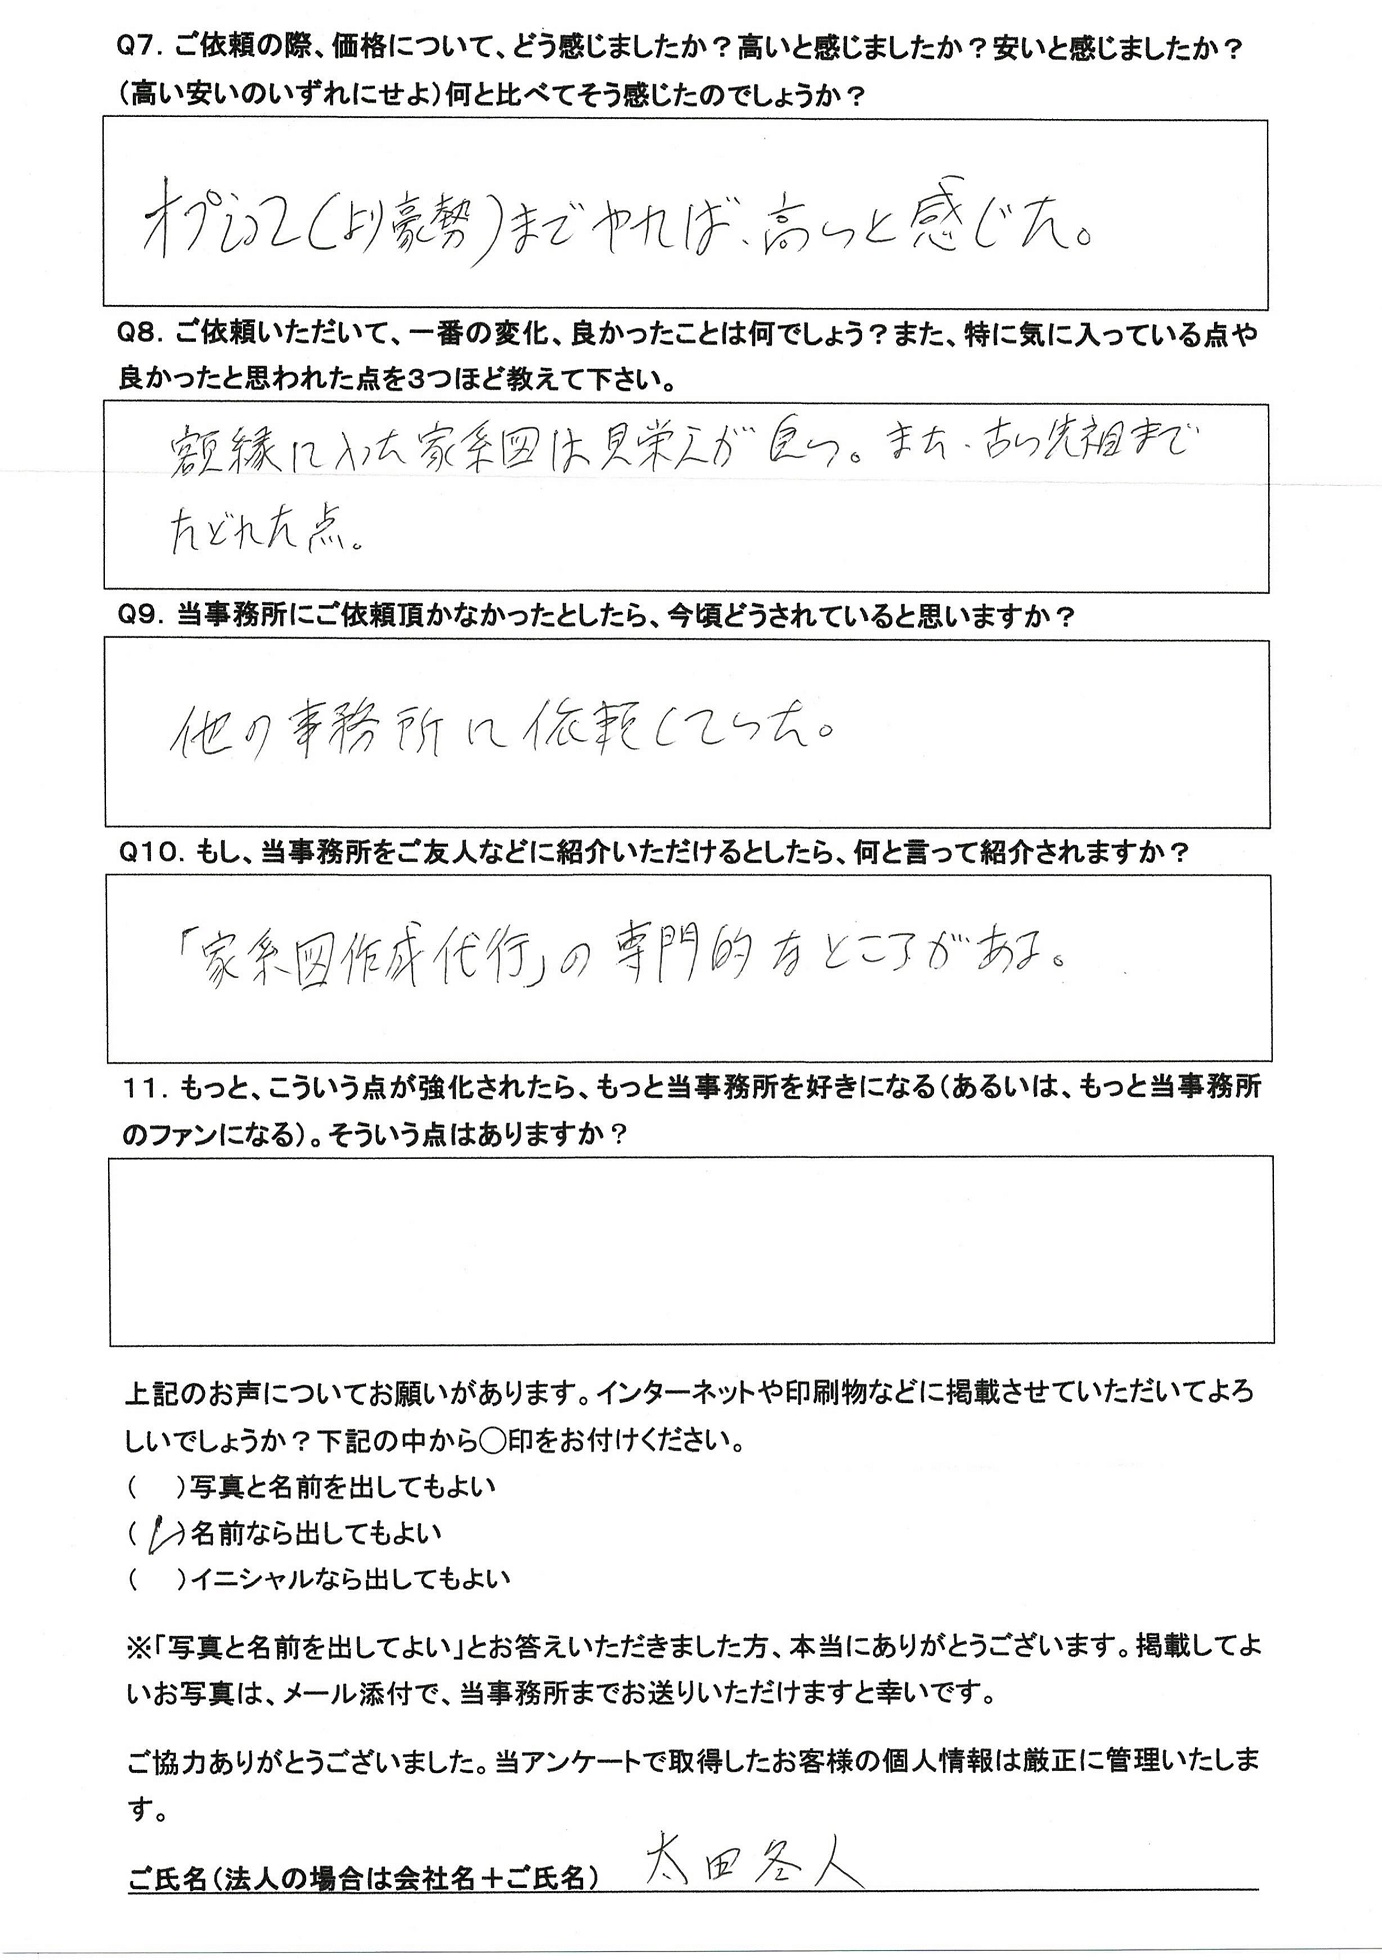 Q7. ご依頼の際、価格について、どう感じましたか？高いと感じましたか？安いと感じましたか？
（高い安いのいずれにせよ）何と比べてそう感じたのでしょうか？
オプション（より豪勢）までやれば、高いと感じた。
Q8. ご依頼いただいて、一番の変化、良かったことは何でしょう？また、特に気に入っている点や
良かったと思われた点を３つほど教えて下さい。
額縁に入った家系図は見栄えが良い。また、古い先祖まで
たどれた点。
Q9. 当事務所にご依頼頂かなかったとしたら、今頃どうされていると思いますか？
他の事務所に依頼していた。
Q10. もし、当事務所をご友人などに紹介いただけるとしたら、何と言って紹介されますか？
「家系図作成代行」の専門的なところがある。
11. もっと、こういう点が強化されたら、もっと当事務所を好きになる（あるいは、もっと当事務所
のファンになる）。そういう点はありますか？
上記のお声についてお願いがあります。インターネットや印刷物などに掲載させていただいてよろ
しいでしょうか？下記の中から○印をお付けください。
（　）写真と名前を出してもよい
（レ）名前なら出してもよい
（　）イニシャルなら出してもよい
※「写真と名前を出してよい」とお答えいただきました方、本当にありがとうございます。掲載してよ
いお写真は、メール添付で、当事務所までお送りいただけますと幸いです。
ご協力ありがとうございました。当アンケートで取得したお客様の個人情報は厳正に管理いたしま
す。
ご氏名（法人の場合は会社名＋ご氏名）　太田冬人